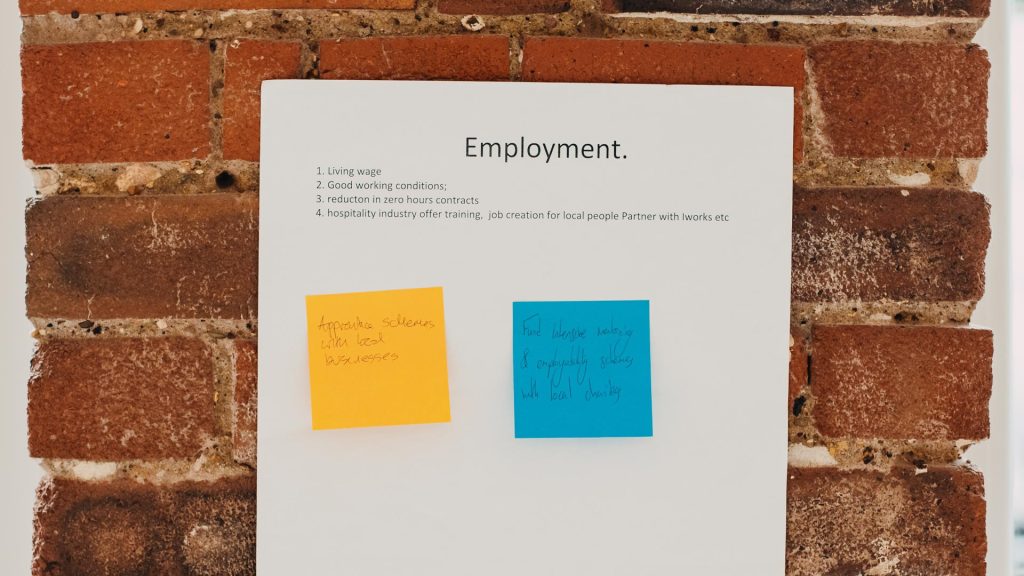 Employment.
1. Living wage
2. Good working conditions;
3. reducton in zero hours contracts
4. hospitality industry offer training, job creation for local people Partner with Iworks etc
Apprentice schemes
with local
businesses
Fund intensive mentoring
& employability schemes
with local charities